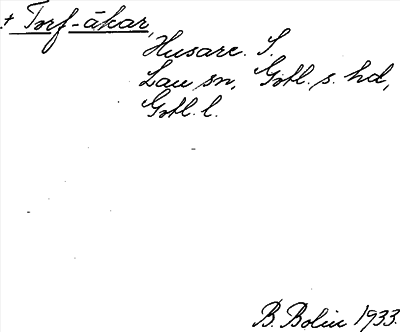 + Torf-åkar,
Husarc. S.
Lau sn, Gotl. s. hd,
Gotl. l.
B. Bolin 1933.